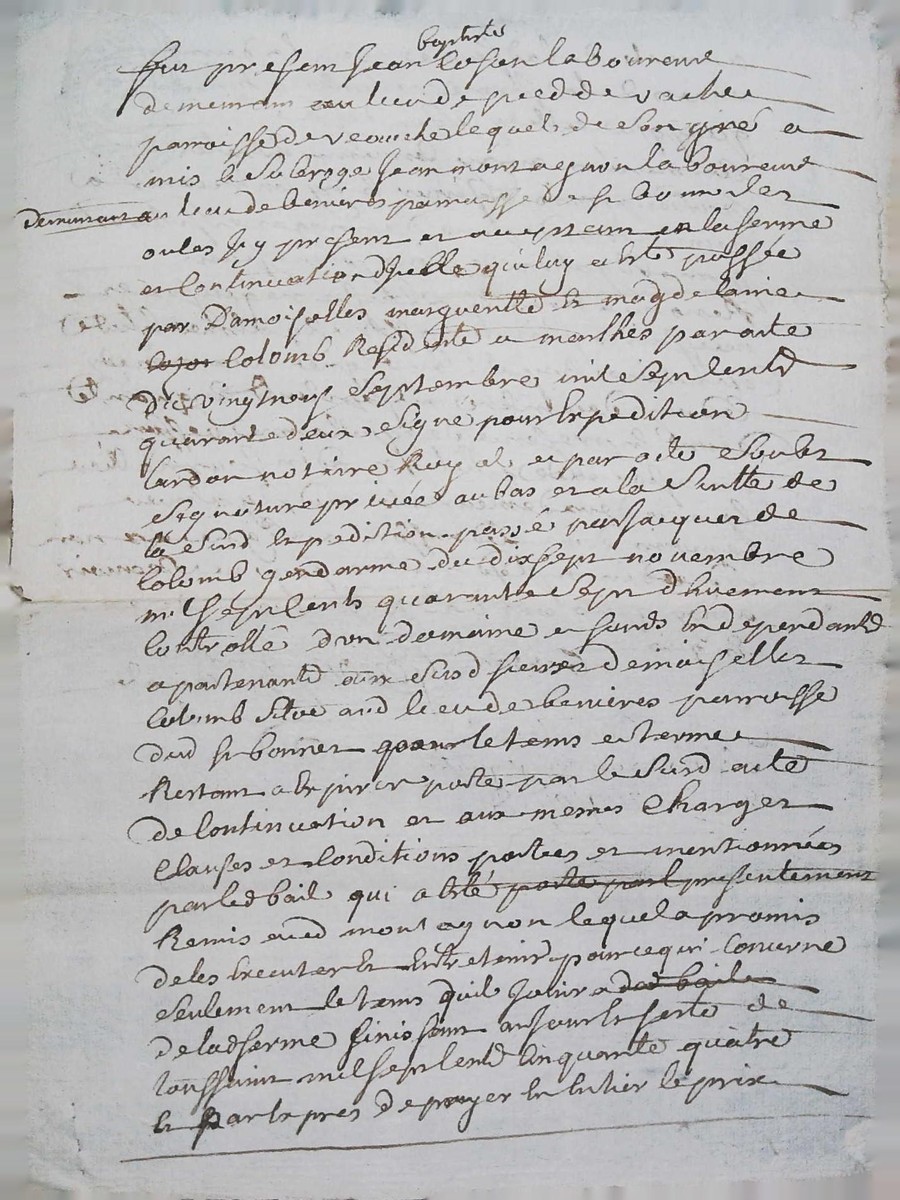 baptiste
fut present jean loson laboureur
demeurant au lieu de pied de vache
parroisse de veauche lequel de son gré a
mis & subroge jean montagnon laboureur
demeurant au lieu de benieres parroisse de st bonnet les
oules icy present et acceptant en la ferme
et continuation d'jcelle qui luy a eté passée
par Damoiselles margueritte & magdelaine
colomb Residente a par acte
Du vingtneuf septembre mil sept cents
quarante deux signé pour expedition
lardon notaire Royal et par acte soubz
signature privée au bas et a la suitte de
la susd expedition passé par jacques de
colomb gendarme du dix sept novembre
mil sept cents quarante sept dhuement
controllé d'un domaine et fonds en dependants
apartenants aux susd sieur & demoiselles
colomb situé aud lieu de benieres parroisse
dud st bonnet pour le tems et terme
Restant a expirer porté par le susd acte
de continuation et aux memes charges
clauses et conditions portées et mentionnées
par led bail qui a eté porté par presentement
Remis aud montagnon lequel a promis
de les executer & entretenir pour ce qui concerne
seulement le tems quil jouira dud bail
de lad ferme finissant au jour & feste de
toussaint mil sept cents cinquante quatre
& par exprés de payer en entier le prix